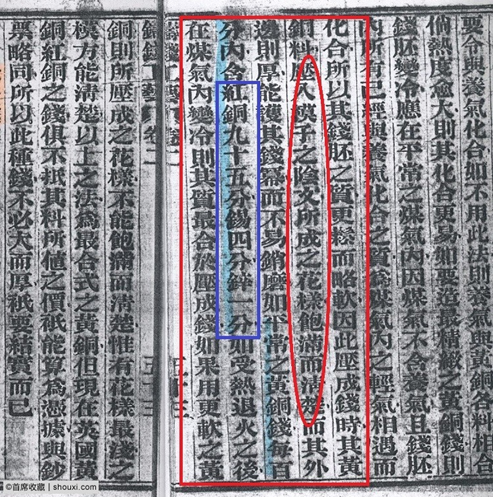 要令與養氣化合如不用此法則養氣與黃銅各料相合
倘熱度愈大則其化合更易如要造最精緻之黃銅錢則
錢胚變冷應在平常之煤氣內因煤氣不含養氣且錢胚
所有已經與養氣化合之質爲煤氣內之輕氣相遇而
化合所以其錢胚之質更鬆而略軟因此壓成錢時其黃
銅料壓入模子之陰文所成之花樣飽滿而清而其外
邊則厚能護其錢幕而不易銷磨如平常之黃銅錢每百
分內含紅銅九十五分錫四分鋅一分如受熱退火之後
在煤氣內變冷則其質最合於壓成錢如果用更軟之黃
銅則所壓成之花樣不能飽滿而清楚惟有花樣最淺之
模方能清楚以上之法爲最合式之黃銅但現在英國黃
銅紅銅之錢俱不抵其料所値之價祇能算爲憑據與鈔
票略同所以此種錢不必大而厚祇要結實而已
©首席收藏 | shouxi.com